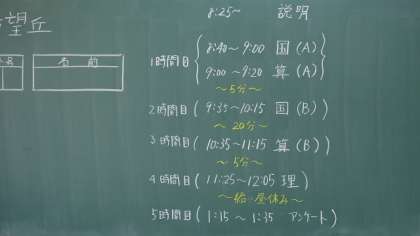 望丘
名前
8:25~ 説明
1時間目 8:40~9:00 国(A)
9:00~9:20 算(A)
~5分~
2時間目(9:35~10:15 国(B))
~20分~
3時間目(10:35~11:15 算(B))
~5分~
4時間目(11:25~12:05 理)
~給・昼休み~
5時間目(1:15~1:35 アンケート)